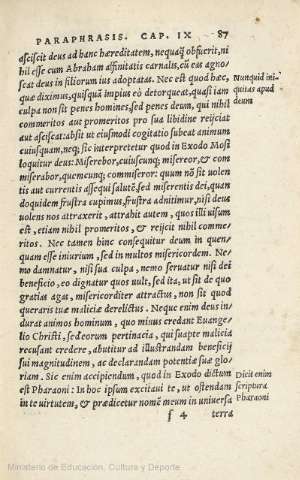 PARAPHRASIS. CAP. IX 87
asciscit deus ad hanc hæreditatem, nequaq̃ obfuerit, ni
hil esse cum Abraham affinitatis carnalis, cũ eas agno/
scat deus in filiorum ius adoptatas. Nec est quod hæc,
quæ diximus, quisquã impius eò detorqueat, quasi iam
culpa non sit penes homines, sed penes deum, qui nihil
commeritos aut promeritos pro sua libidine reijciat
aut asciscat: absit ut eiusmodi cogitatio subeat animum
cuiusquam, neq; sic interpretetur quod in Exodo Mosi
loquitur deus: Miserebor, cuiuscunq; misereor, & com
miserabor, quemcunq; commiseror: quum nõ sit uolen
tis aut currentis assequi salutẽ, sed miserentis dei, quan
doquidem frustra cupimus, frustra adnitimur, nisi deus
uolens nos attraxerit, attrahit autem, quos illi uisum
est, etiam nihil promeritos, & reijcit nihil comme/
ritos. Nec tamen hinc consequitur deum in quen/
quam esse iniurium, sed in multos misericordem. Ne/
mo damnatur, nisi sua culpa, nemo seruatur nisi dei
beneficio, eo dignatur quos uult, sed ita, ut sit de quo
gratias agas, misericorditer attractus, non sit quod
queraris tuæ maliciæ derelictus. Neque enim deus in/
durat animos hominum, quo minus credant Euange/
lio Christi, sed eorum pertinacia, qui suapte malicia
recusant credere, abutitur ad illustrandam beneficij
sui magnitudinem, ac declarandam potentiæ suæ glo/
riam. Sic enim accipiendum, quod in Exodo dictum
est Pharaoni: In hoc ipsum excitaui te, ut ostendam
in te uirtutem, & prædicetur nomẽ meum in uniuersa
f 4 terra
Nunquid ini/
quitas apud
deum
Dicit enim
scriptura
Pharaoni
Ministerio de Educación, Cultura y Deporte